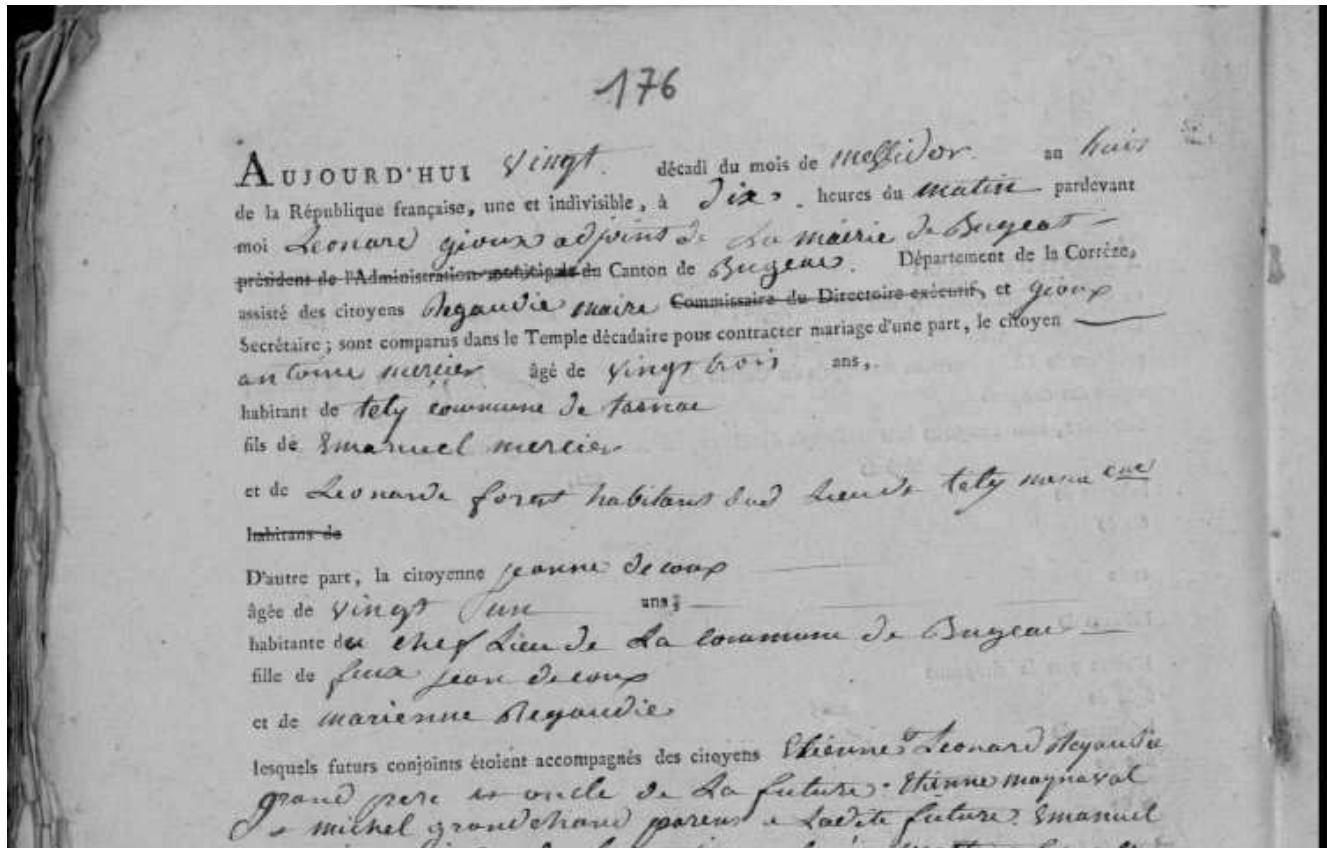 176
AUJOURD'HUI Vingt décadi du mois de messidor an huit
de la République française, une et indivisible, à dix heures du matin pardevant
moi Leonard gioux adjoint de La mairie de Bugeat
président de l'Administration municipale du Canton de Bugeat. Département de la Corrèze,
assisté des citoyens Regaudie maire Commissaire du Directoire exécutif, et gioux
Secrétaire ; sont comparus dans le Temple décadaire pour contracter mariage d'une part, le citoyen
antoine mercier âgé de vingt trois ans,
habitant de tely commune de tarnac
fils de Emanuel mercier
et de Leonarde forest habitans dud Lieu de tely meme cne
habitans de
D'autre part, la citoyenne jeanne decoux
âgée de vingt un ans
habitante du chef Lieu de La commune de Bugeat
fille de feux jean decoux
et de marienne Regaudie
lesquels futurs conjoints étoient accompagnés des citoyens Etienne Leonard Regaudie
grand pere et oncle de La future. Etienne magnaval
michel grandchaud parens a Ladite future. Emanuel